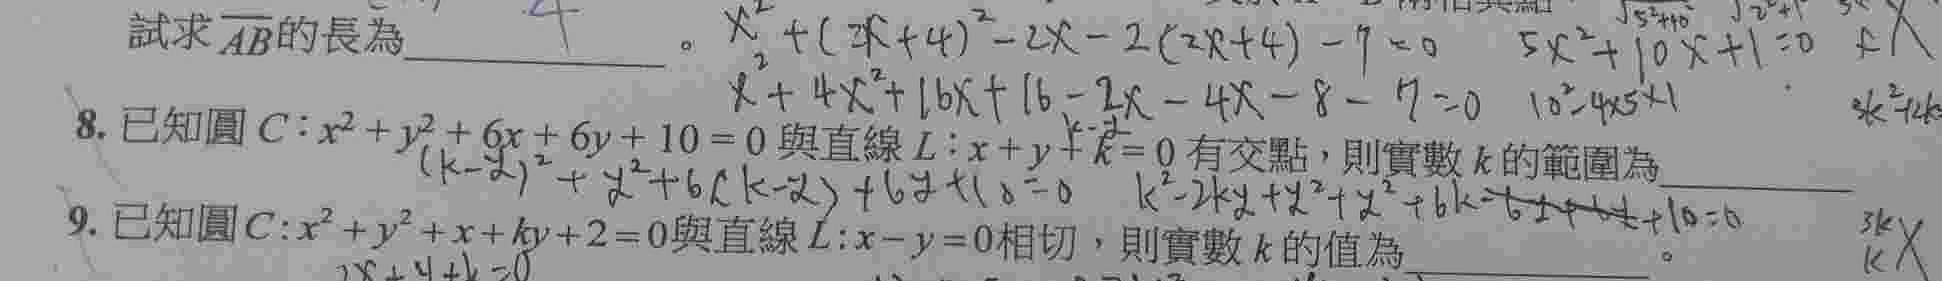 試求 AB 的長為 4 。 x²+(2x+4)²-2x-2(2x+4)-7=0 5x²+10x+1=0
x²+4x²+16x+16-2x-4x-8-7=0 10²-4x5x1
8. 已知圓 C：x²+y²+6x+6y+10=0 與直線 L：x+y+k=0 有交點，則實數 k 的範圍為
k-y
(k-y)²+y²+6(k-y)+6y+10=0 k²-2ky+y²+y²+6k-6y+6y+10=0
9. 已知圓 C:x²+y²+x+ky+2=0與直線 L:x-y=0相切，則實數 k 的值為 。
3k
k